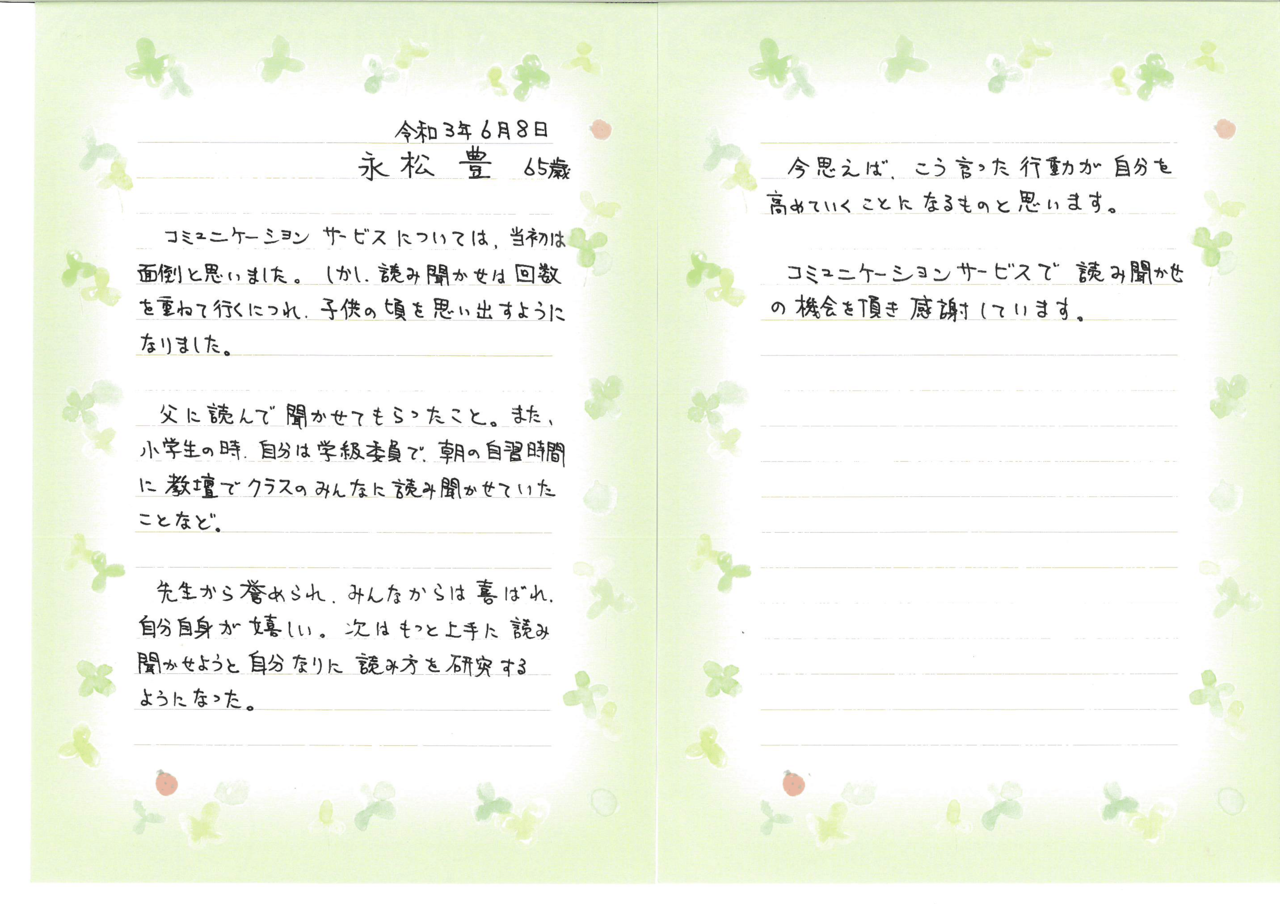 令和3年6月8日
永松 豊 65歳
コミュニケーション サービスについては、当初は
面倒と思いました。しかし、読み聞かせは回数
を重ねて行くにつれ、子供の頃を思い出すように
なりました。
父に読んで聞かせてもらったこと。また、
小学生の時、自分は学級委員で、朝の自習時間
に教壇でクラスのみんなに読み聞かせていた
ことなど。
先生から誉められ、みんなからは喜ばれ、
自分自身が嬉しい。次はもっと上手に読み
聞かせようと自分なりに読み方を研究する
ようになった。
今思えば、こう言った行動が自分を
高めていくことになるものと思います。
コミュニケーションサービスで読み聞かせ
の機会を頂き感謝しています。